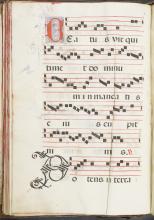 BEa tu s vit qui
time t do minu
in in man da ti s
e iu s cu pit
ni mis V.
P o tens in terra